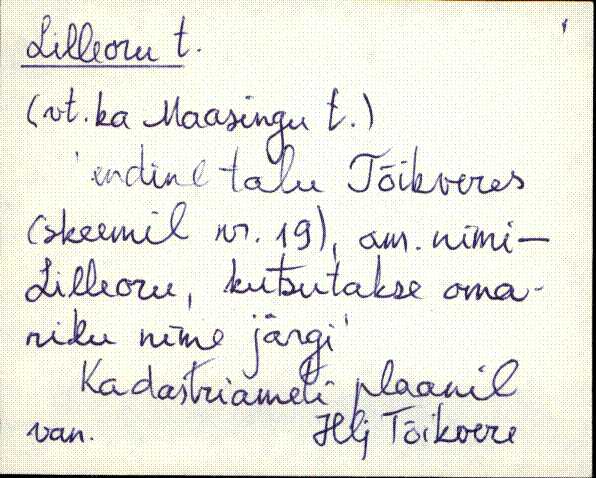 Lilleoru t.
(vt. ka Maasingu t.)
'endine talu Tõikveres
(skeemil nr. 19), am. nimi -
Lilleoru, kutsutakse oma-
niku nime järgi'
Kadastriameti plaanil
van. Hlj Tõikvere